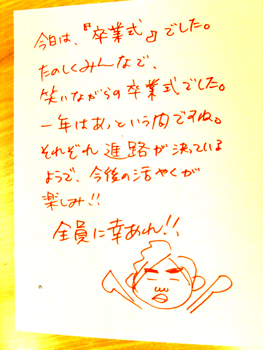 今日は、『卒業式』でした。
たのしくみんなで、
笑いながらの卒業式でした。
一年はあっという間ですね。
それぞれ進路が決っている
ようで、今後の活やくが
楽しみ!!
全員に幸あれ!!